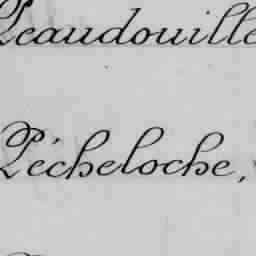 Peaudouille
Pécheloche,